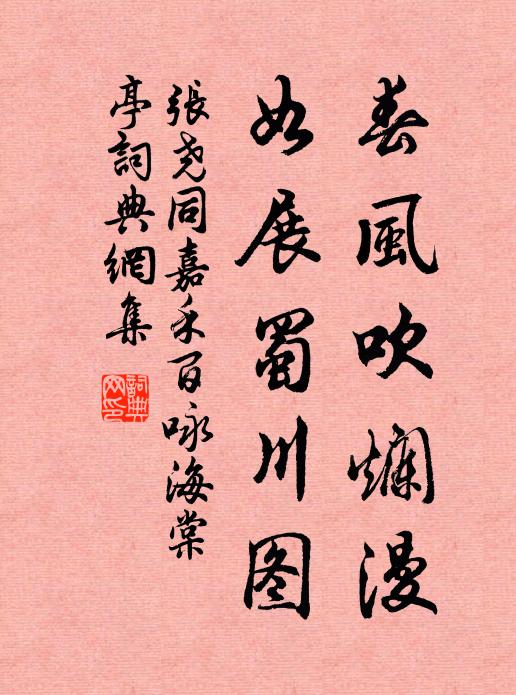 春風吹爛漫
如展蜀川图
張尧同嘉禾百咏海棠
亭詞典網集
詞典
网印